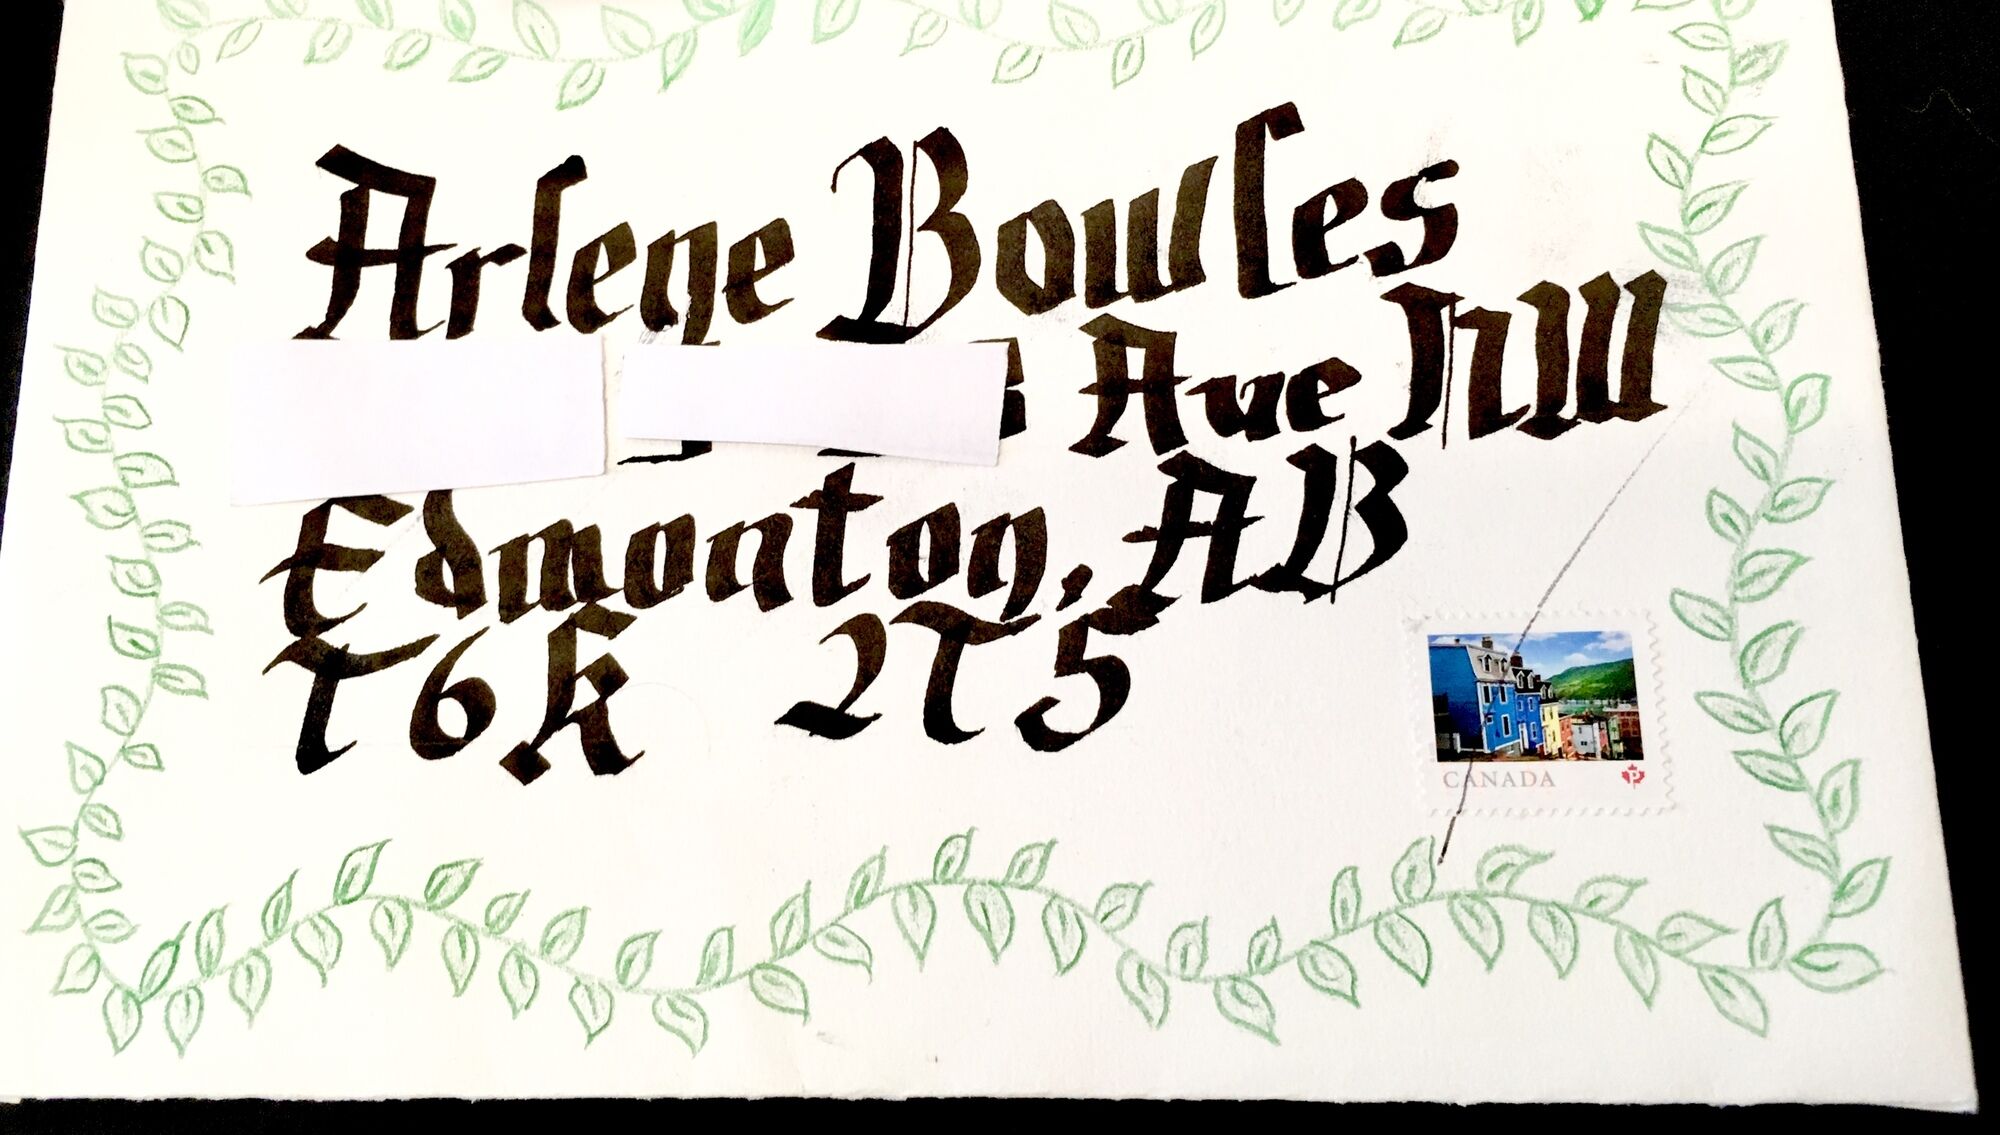 Arlene Bowles
Ave NW
Edmonton, AB
T6K 2T5
CANADA
P